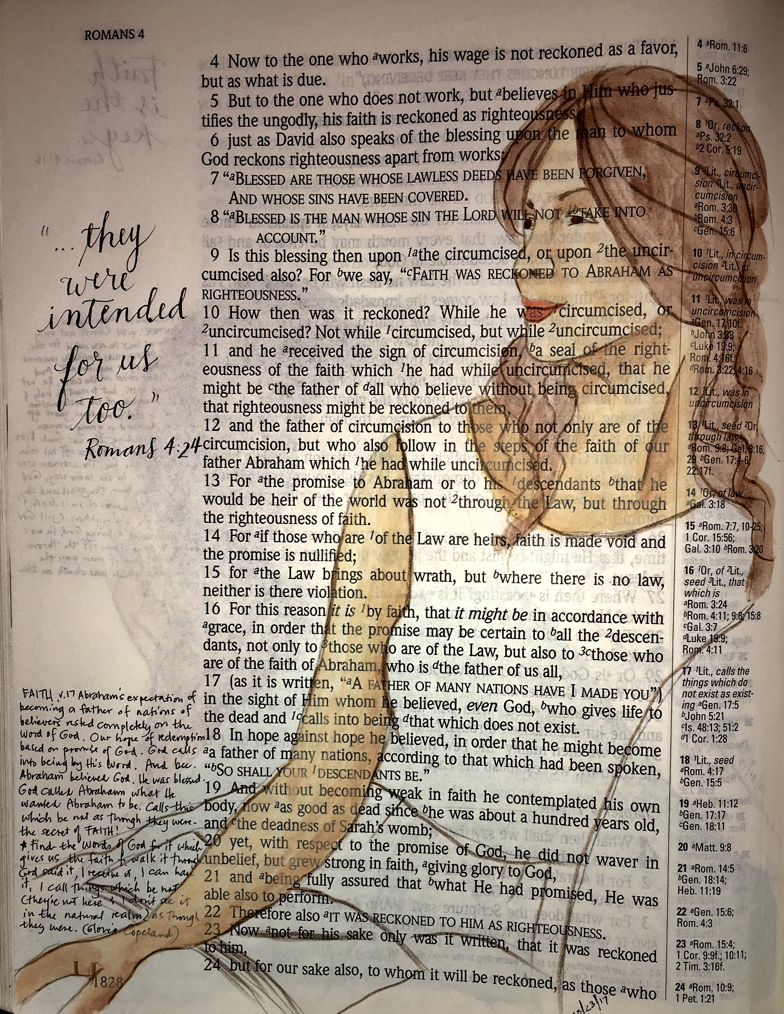 ROMANS 4
4 Now to the one who ᵃworks, his wage is not reckoned as a favor,
but as what is due.
5 But to the one who does not work, but ᵃbelieves in Him who jus-
tifies the ungodly, his faith is reckoned as righteousness,
6 just as David also speaks of the blessing upon the man to whom
God reckons righteousness apart from works:
7 “ᵃBLESSED ARE THOSE WHOSE LAWLESS DEEDS HAVE BEEN FORGIVEN,
AND WHOSE SINS HAVE BEEN COVERED.
8 “ᵃBLESSED IS THE MAN WHOSE SIN THE LORD WILL NOT ᵇTAKE INTO
ACCOUNT.”
9 Is this blessing then upon ¹ᵃthe circumcised, or upon ²the uncir-
cumcised also? For ᵇwe say, “ᶜFAITH WAS RECKONED TO ABRAHAM AS
RIGHTEOUSNESS.”
10 How then was it reckoned? While he was ¹circumcised, or
²uncircumcised? Not while ¹circumcised, but while ²uncircumcised;
11 and he ᵃreceived the sign of circumcision, ᵇa seal of the right-
eousness of the faith which ¹he had while uncircumcised, that he
might be ᶜthe father of ᵈall who believe without being circumcised,
that righteousness might be reckoned to them,
12 and the father of circumcision to those who not only are of the
circumcision, but who also follow in the steps of the faith of our
father Abraham which ¹he had while uncircumcised.
13 For ᵃthe promise to Abraham or to his ¹descendants ᵇthat he
would be heir of the world was not ²through the Law, but through
the righteousness of faith.
14 For ᵃif those who are ¹of the Law are heirs, faith is made void and
the promise is nullified;
15 for ᵃthe Law brings about wrath, but ᵇwhere there is no law,
neither is there violation.
16 For this reason it is ¹by faith, that it might be in accordance with
ᵃgrace, in order that the promise may be certain to ᵇall the ²descen-
dants, not only to ³those who are of the Law, but also to ³ᶜthose who
are of the faith of Abraham, who is ᵈthe father of us all,
17 (as it is written, “ᵃA FATHER OF MANY NATIONS HAVE I MADE YOU”)
in the sight of Him whom he believed, even God, ᵇwho gives life to
the dead and ¹ᶜcalls into being ᵈthat which does not exist.
18 In hope against hope he believed, in order that he might become
ᵃa father of many nations, according to that which had been spoken,
“ᵇSO SHALL YOUR ¹DESCENDANTS BE.”
19 And without becoming weak in faith he contemplated his own
body, now ᵃas good as dead since ᵇhe was about a hundred years old,
and ᶜthe deadness of Sarah’s womb;
20 yet, with respect to the promise of God, he did not waver in
unbelief, but grew strong in faith, ᵃgiving glory to God,
21 and ᵃbeing fully assured that ᵇwhat He had promised, He was
able also to perform.
22 Therefore also ᵃIT WAS RECKONED TO HIM AS RIGHTEOUSNESS.
23 Now ᵃnot for his sake only was it written, that it was reckoned
to him,
24 but for our sake also, to whom it will be reckoned, as those ᵃwho
10/23/17
"...they
were
intended
for us
too."
Romans 4:24
FAITH v.17 Abraham's expectation of
becoming a father of nations of
believers rested completely on the
word of God. Our hope of redemption
based on promise of God. God calls
into being by His Word. And bec.
Abraham believed God. He was blessed.
God called Abraham what He
wanted Abraham to be. Calls this
which be not as though they were.
the secret of FAITH!
* find the words of God for it which
gives us the faith to walk it through
God said it, I receive it, I can have
it, I call things which be not
(they're not here & I don't see it
in the natural realm) as though
they were. (Gloria Copeland)
1828
4 ᵃRom. 11:6
5 ᵃJohn 6:29;
Rom. 3:22
7 ᵃPs. 32:1
8 ¹Or, reckon
ᵃPs. 32:2
ᵇ2 Cor. 5:19
9 ¹Lit., circumci-
sion ²Lit., uncir-
cumcision
ᵃRom. 3:30
ᵇRom. 4:3
ᶜGen. 15:6
10 ¹Lit., in circum-
cision ²Lit., in
uncircumcision
11 ¹Lit., was in
uncircumcision
ᵃGen. 17:10f.
ᵇJohn 3:33
ᶜLuke 19:9;
Rom. 4:16f.
ᵈRom. 3:22; 4:16
12 ¹Lit., was in
uncircumcision
13 ¹Lit., seed ²Or,
through law
ᵃRom. 9:8; Gal. 3:16,
29 ᵇGen. 17:4-6;
22:17f.
14 ¹Or, of law
ᵃGal. 3:18
15 ᵃRom. 7:7, 10-25;
1 Cor. 15:56;
Gal. 3:10 ᵇRom. 3:20
16 ¹Or, of ²Lit.,
seed ³Lit., that
which is
ᵃRom. 3:24
ᵇRom. 4:11; 9:8; 15:8
ᶜGal. 3:7
ᵈLuke 19:9;
Rom. 4:11
17 ¹Lit., calls the
things which do
not exist as exist-
ing ᵃGen. 17:5
ᵇJohn 5:21
ᶜIs. 48:13; 51:2
ᵈ1 Cor. 1:28
18 ¹Lit., seed
ᵃRom. 4:17
ᵇGen. 15:5
19 ᵃHeb. 11:12
ᵇGen. 17:17
ᶜGen. 18:11
20 ᵃMatt. 9:8
21 ᵃRom. 14:5
ᵇGen. 18:14;
Heb. 11:19
22 ᵃGen. 15:6;
Rom. 4:3
23 ᵃRom. 15:4;
1 Cor. 9:9f.; 10:11;
2 Tim. 3:16f.
24 ᵃRom. 10:9;
1 Pet. 1:21